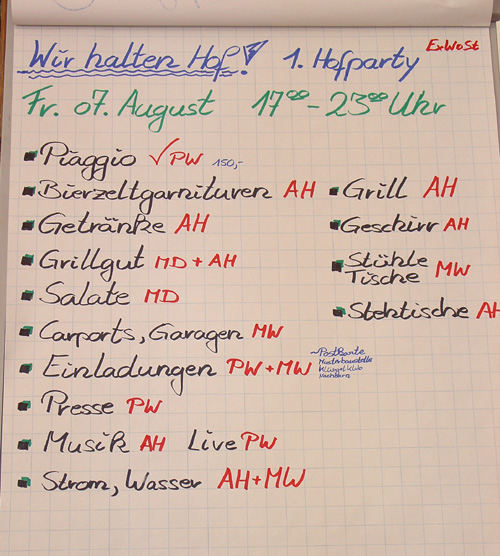 Wir halten Hof! 1. Hofparty ExWoSt
Fr. 07. August 17⁰⁰-23⁰⁰ Uhr
Piaggio ✓ PW 150,-
Bierzeltgarnituren AH
Getränke AH
Grillgut MD + AH
Salate MD
Carports, Garagen MW
Einladungen PW+MW
~Postkarte
Nachbarn
Presse PW
Musik AH Live PW
Strom, Wasser AH+MW
Grill AH
Geschirr AH
Stühle
Tische MW
Stehtische AH